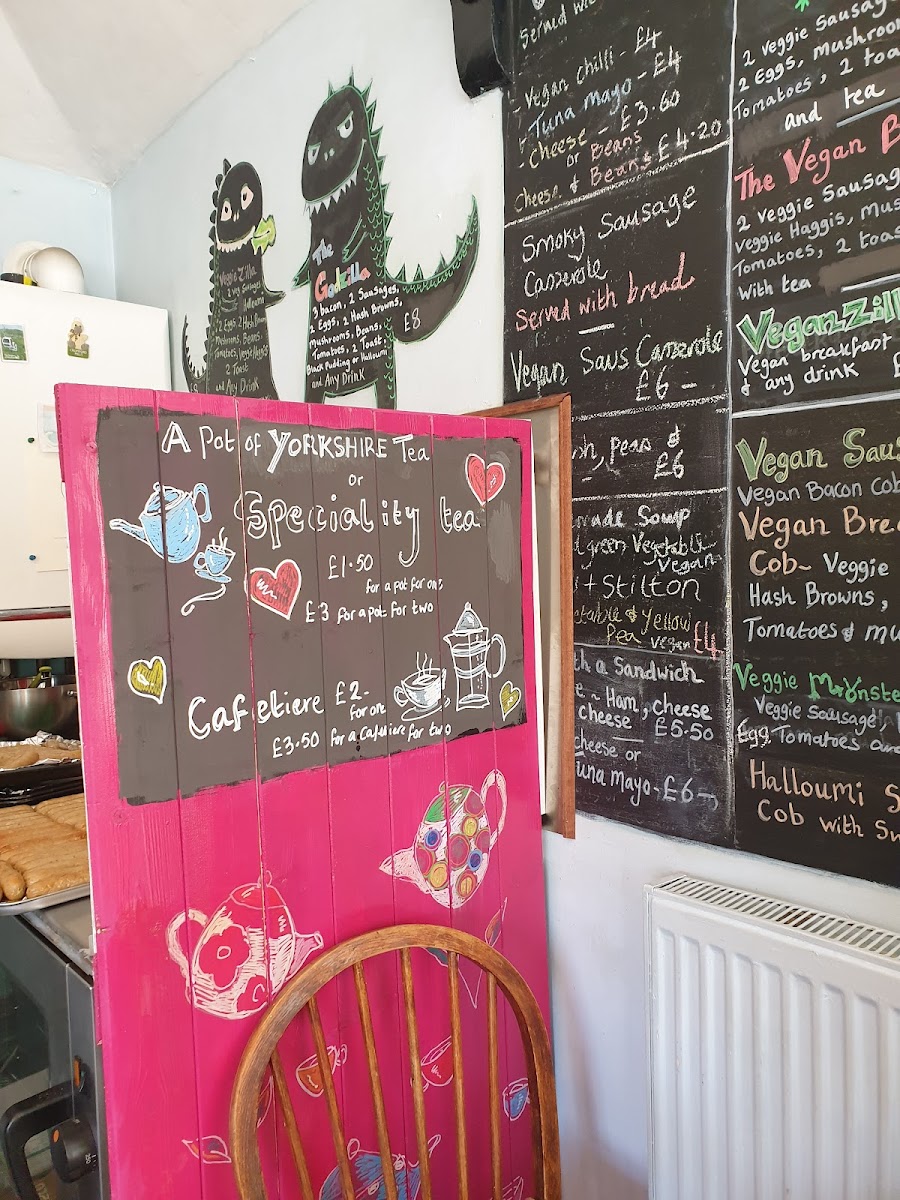 Veggie Zilla
2 Veg Sausages
Halloumi
2 Eggs, 2 Hash Browns
Mushrooms, Beans,
Tomatoes, Veggie Haggis
2 Toast
and Any Drink
The
Godzilla
3 bacon, 2 Sausages,
2 Eggs, 2 Hash Browns,
Mushrooms, Beans,
Tomatoes, 2 Toast
Black Pudding or Halloumi
and Any Drink
£8
A Pot of YORKSHIRE Tea
or
Speciality tea
£1.50
for a pot for one,
£3 for a pot for two
Cafetiere £2-
for one
£3.50 for a cafetiere for two
Served
- Vegan chilli - £4
Tuna mayo - £4
- Cheese - £3.60
or Beans
Cheese & Beans £4.20
Smoky Sausage
Casserole
Served with bread
Vegan Saus Casserole
£6-
Peas &
£6
Soup
green Vegetable
Vegan
+ Stilton
& Yellow
Pea vegan £4
a Sandwich
- Ham, cheese
cheese £5.50
Cheese or
Tuna mayo - £6-
2 veggie Sausag
2 Eggs, mushroom
Tomatoes, 2 toa
and tea
The Vegan B
2 veggie Sausag
Veggie Haggis, Mus
Tomatoes, 2 toas
With tea
VeganZill
Vegan breakfast
& any drink £
Vegan Saus
Vegan Bacon Cob
Vegan Brea
Cob - Veggie
Hash Browns,
Tomatoes & mu
Veggie Monste
Veggie Sausage,
Egg, Tomatoes and
Halloumi S
Cob with Sw